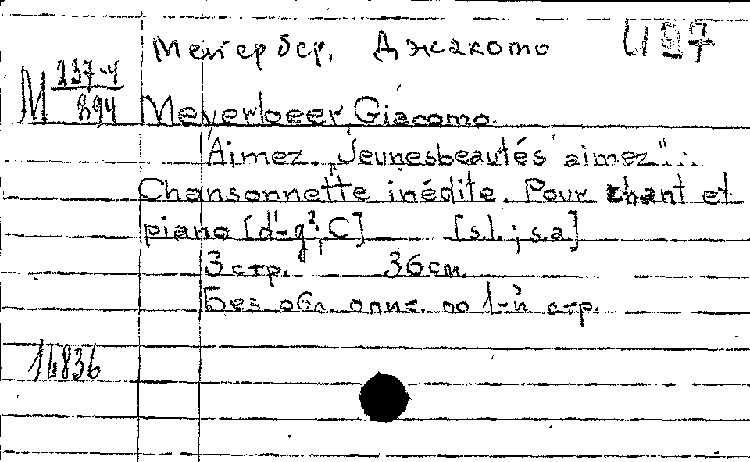 Мейербер, Джакомо
M 237-4/894
Meyerbeer Giacomo.
"Aimez "Jeunesbeautés aimez"...
Chansonnette inédite. Pour chant et
piano [d¹-g²; C] [s.l.; s.a]
3 стр. 36 см.
Без обл. опис. по 1-й стр.
14836